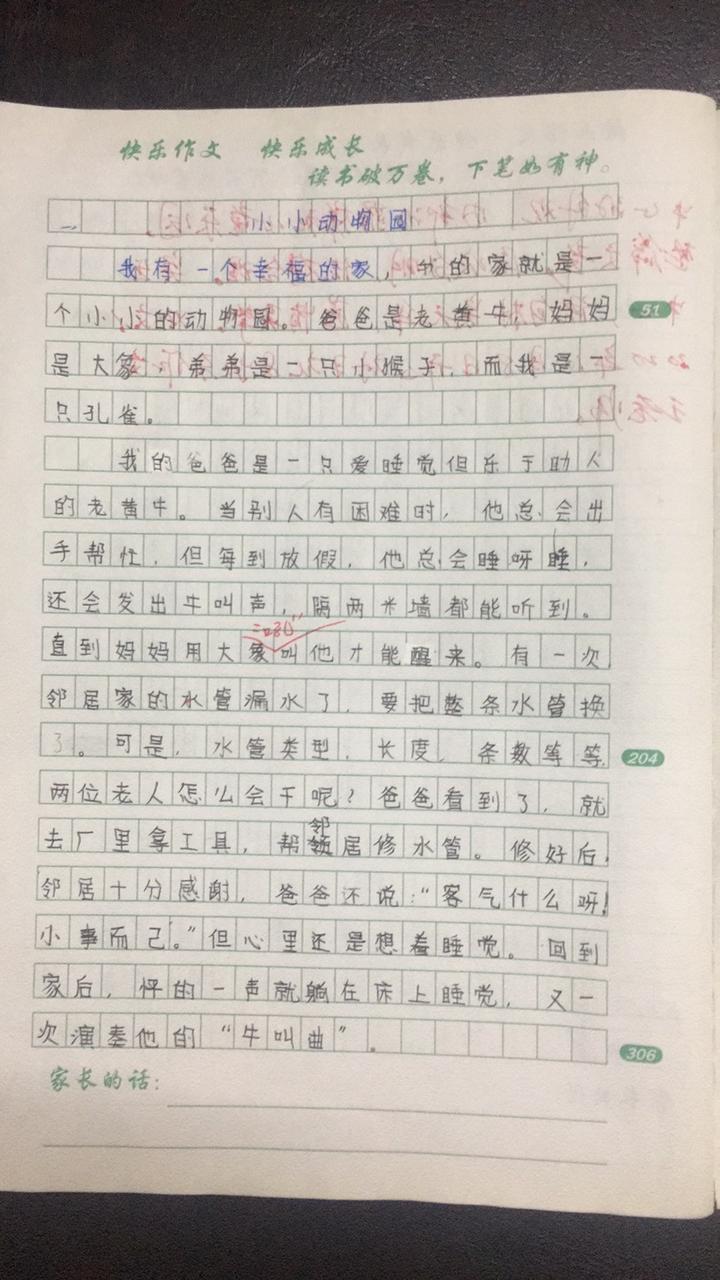 快乐作文 快乐成长
读书破万卷，下笔如有神。
小小动物园
我有一个幸福的家，我的家就是一
个小小的动物园。爸爸是老黄牛，妈妈
51
是大象，弟弟是一只小猴子，而我是一
只孔雀。
我的爸爸是一只爱睡觉但乐于助人
的老黄牛。当别人有困难时，他总会出
手帮忙，但每到放假，他总会睡呀睡，
还会发出牛叫声，隔两米墙都能听到。
直到妈妈用大象叫他才能醒来。有一次
邻居家的水管漏水了，要把整条水管换
了。可是，水管类型，长度，条数等等，
204
两位老人怎么会干呢？爸爸看到了，就
去厂里拿工具，帮邻居修水管。修好后，
邻居十分感谢，爸爸还说：“客气什么呀！
小事而已。”但心里还是想着睡觉。回到
家后，怦的一声就躺在床上睡觉，又一
次演奏他的“牛叫曲”．
306
家长的话：